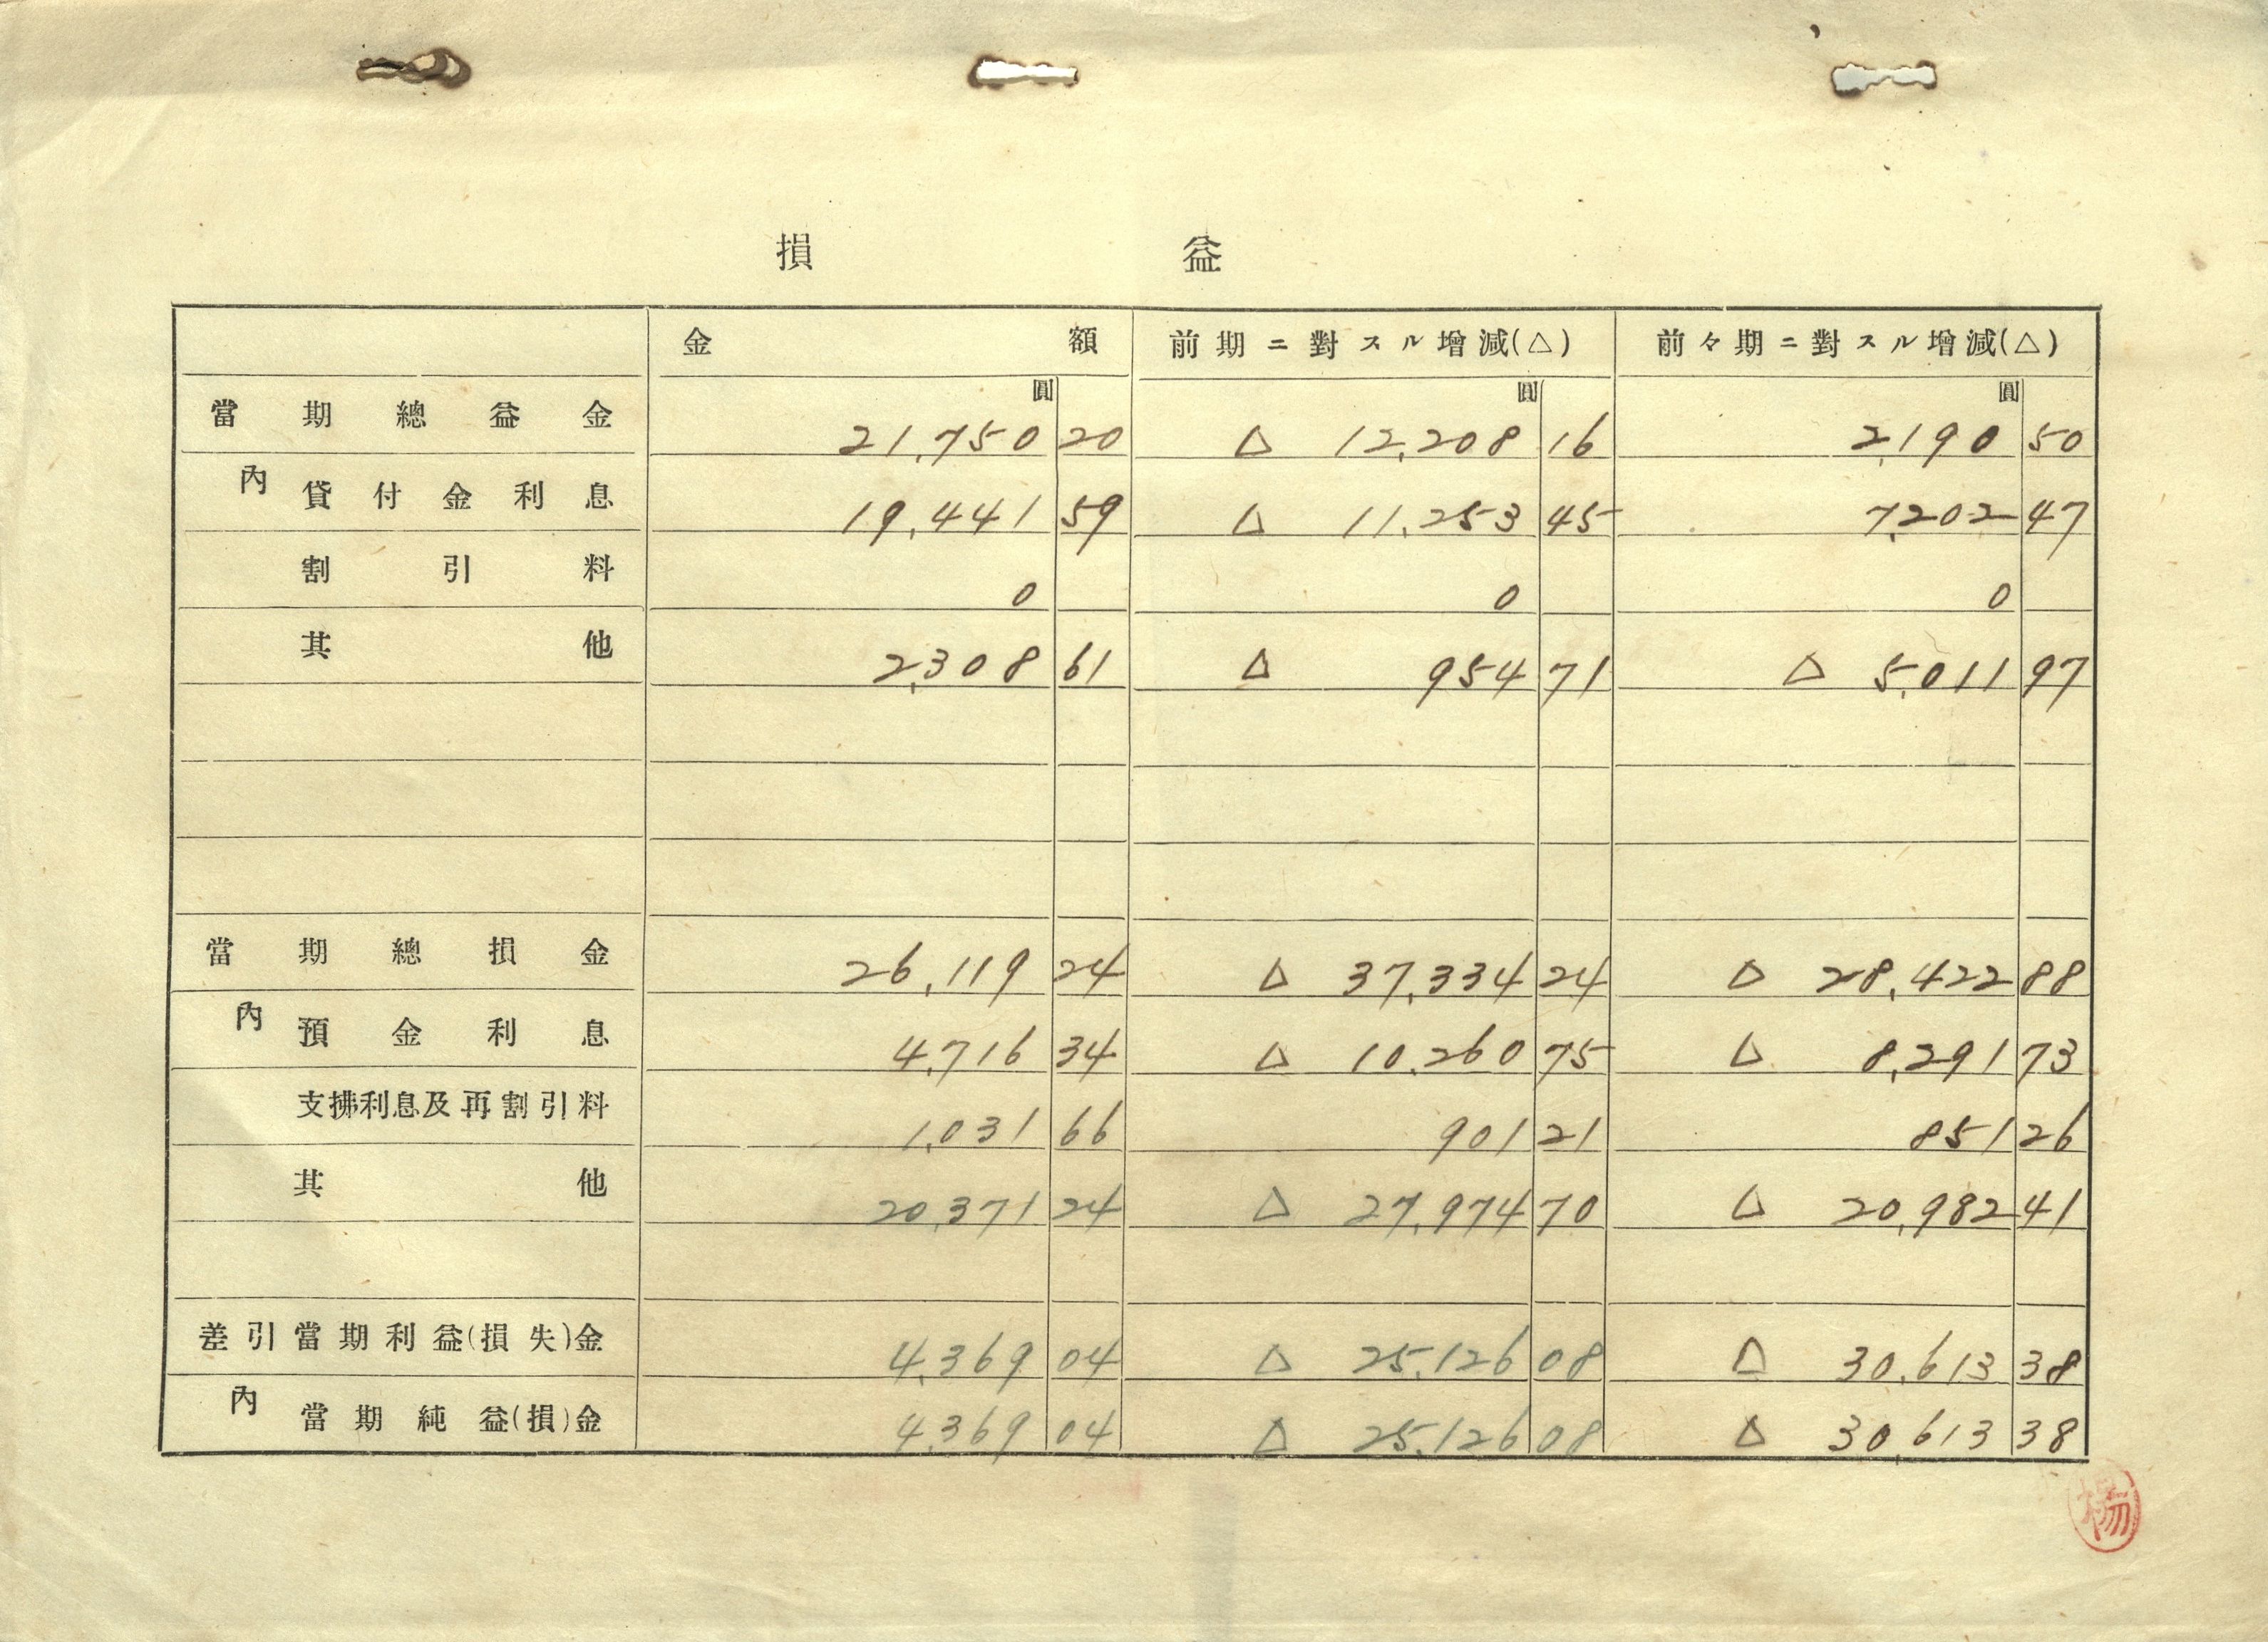 損益
金額 前期ニ對スル增減(△) 前々期ニ對スル增減(△)
圓 圓 圓
當期總益金 21,750 20 △ 12,208 16 2,190 50
內 貸付金利息 19,441 59 △ 11,253 45 7,202 47
割引料 0 0 0
其他 2,308 61 △ 954 71 △ 5,011 97
當期總損金 26,119 24 △ 37,334 24 △ 28,422 88
內 預金利息 4,716 34 △ 10,260 75 △ 8,291 73
支拂利息及再割引料 1,031 66 901 21 851 26
其他 20,371 24 △ 27,974 70 △ 20,982 41
差引當期利益(損失)金 4,369 04 △ 25,126 08 △ 30,613 38
內 當期純益(損)金 4,369 04 △ 25,126 08 △ 30,613 38
楊